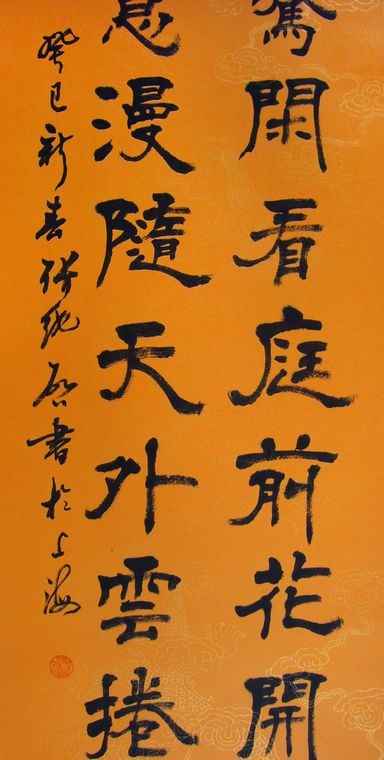 驚閑看庭前花開
意漫隨天外雲捲
癸巳新春書於上海